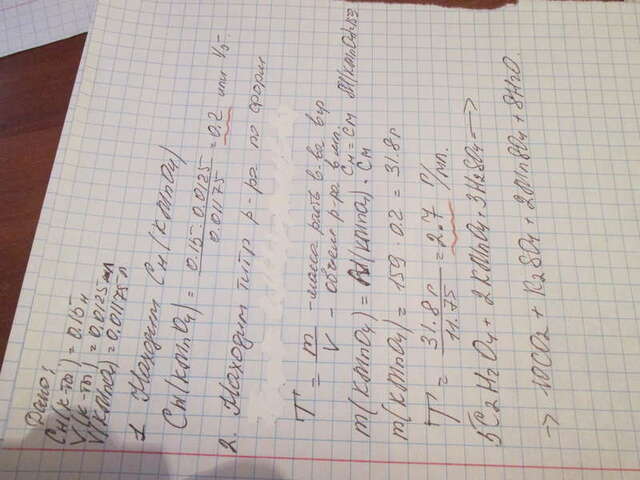 Дано:
Cн(к-ты) = 0.15н
V(к-ты) = 0.0125 л
V(KMnO4) = 0.01175 л
1. Находим Cн(KMnO4)
Cн(KMnO4) = 0.15·0.0125 / 0.01175 = 0.2 или 1/5
2. Находим титр р-ра по форм
T = m / V - масса раств. в-ва в гр
- объем р-ра в мл.
Cн = Cм
m(KMnO4) = M(KMnO4) · Cм
m(KMnO4) = 159 · 0.2 = 31.8 г
T = 31.8 г / 11.75 = 2.7 г/мл.
5C2H2O4 + 2KMnO4 + 3H2SO4 →
→ 10CO2 + K2SO4 + 2MnSO4 + 8H2O.